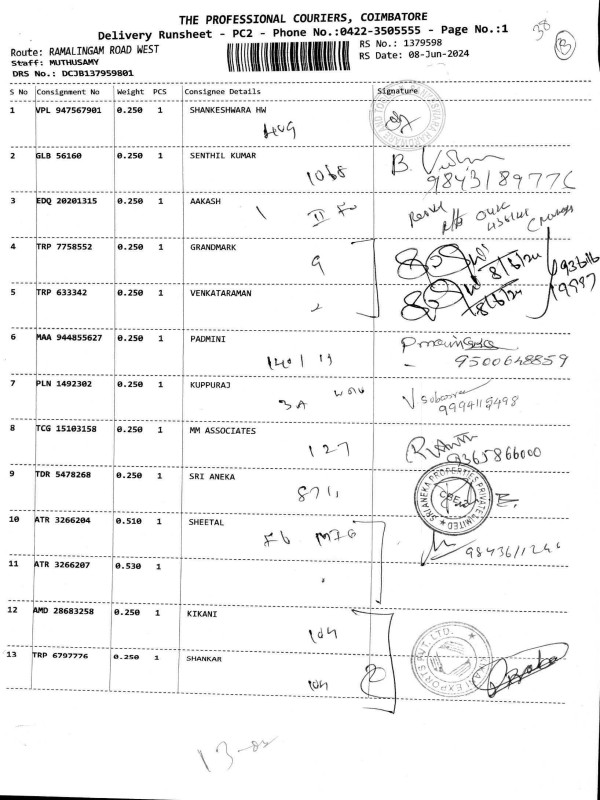 THE PROFESSIONAL COURIERS, COIMBATORE
Delivery Runsheet - PC2 - Phone No.:0422-3505555 - Page No.:1
38
Route: RAMALINGAM ROAD WEST
RS No.: 1379598
Staff: MUTHUSAMY
RS Date: 08-Jun-2024
DRS No.: DCJB137959801
S No Consignment No Weight PCS Consignee Details Signature
1 VPL 947567901 0.250 1 SHANKESHWARA HW
2 GLB 56160 0.250 1 SENTHIL KUMAR
1068
9843189776
3 EDQ 20201315 0.250 1 AAKASH
4 TRP 7758552 0.250 1 GRANDMARK
9
8/6/24
5 TRP 633342 0.250 1 VENKATARAMAN
8/6/24
6 MAA 944855627 0.250 1 PADMINI
9500648859
7 PLN 1492302 0.250 1 KUPPURAJ
3A
8 TCG 15103158 0.250 1 MM ASSOCIATES
127
9365866000
9 TDR 5478268 0.250 1 SRI ANEKA
SRI ANEKA PROPERTIES PRIVATE LIMITED
10 ATR 3266204 0.510 1 SHEETAL
11 ATR 3266207 0.530 1
12 AMD 28683258 0.250 1 KIKANI
104
13 TRP 6797776 0.250 1 SHANKAR
104